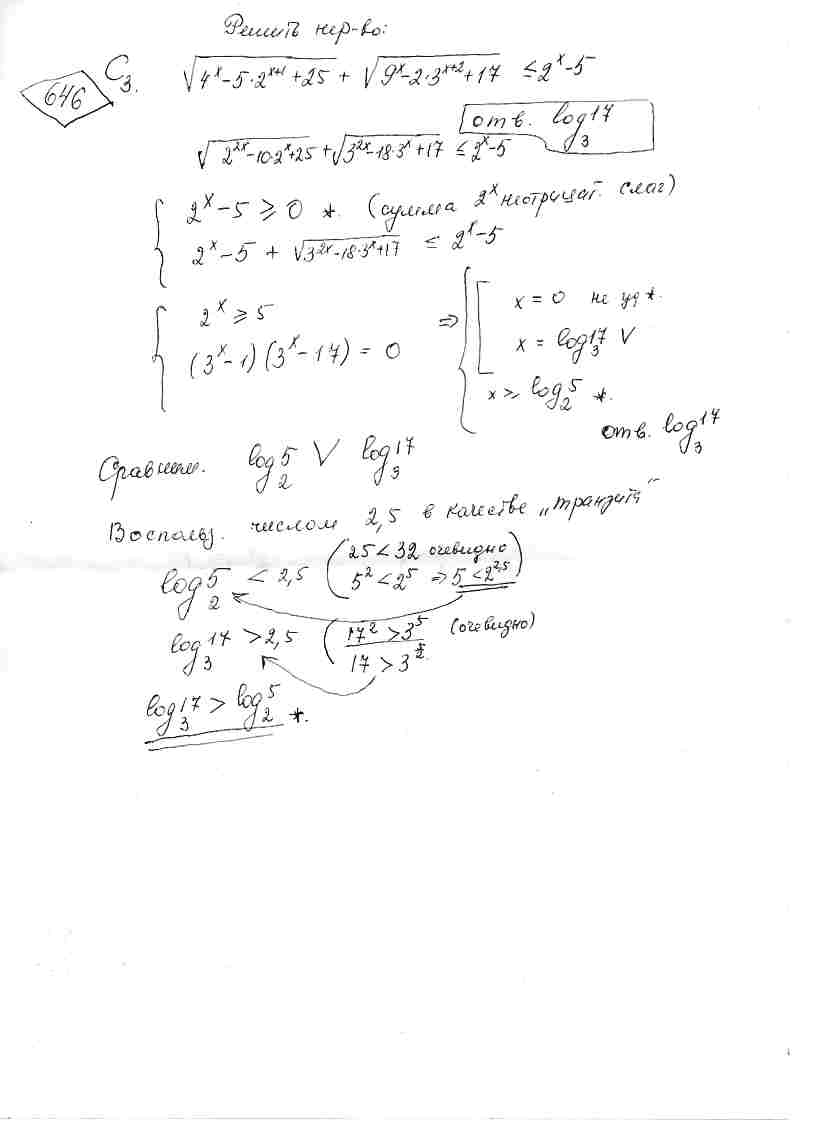 Решить нер-во:
646
C₃. √(4ˣ-5·2ˣ⁺¹+25) + √(9ˣ-2·3ˣ⁺²+17) ≤ 2ˣ-5
отв. log₃17
√(2²ˣ-10·2ˣ+25) + √(3²ˣ-18·3ˣ+17) ≤ 2ˣ-5
{ 2ˣ-5 ⩾ 0 *. (сумма 2ˣ неотрицат. слаг)
2ˣ-5 + √(3²ˣ-18·3ˣ+17) ≤ 2ˣ-5
{ 2ˣ ⩾ 5
(3ˣ-1)(3ˣ-17) = 0
⇒ { [ x = 0 не уд *.
x = log₃17 V
x ⩾ log₂5 *.
отв. log₃17
Сравним. log₂5 V log₃17
Воспольз. числом 2,5 в качестве „транзита"
log₂5 < 2,5 (25<32 очевидно
5²<2⁵ ⇒ 5<2²·⁵)
log₃17 > 2,5 (17²>3⁵ (очевидно)
17>3^(5/2)
log₃17 > log₂5 *.